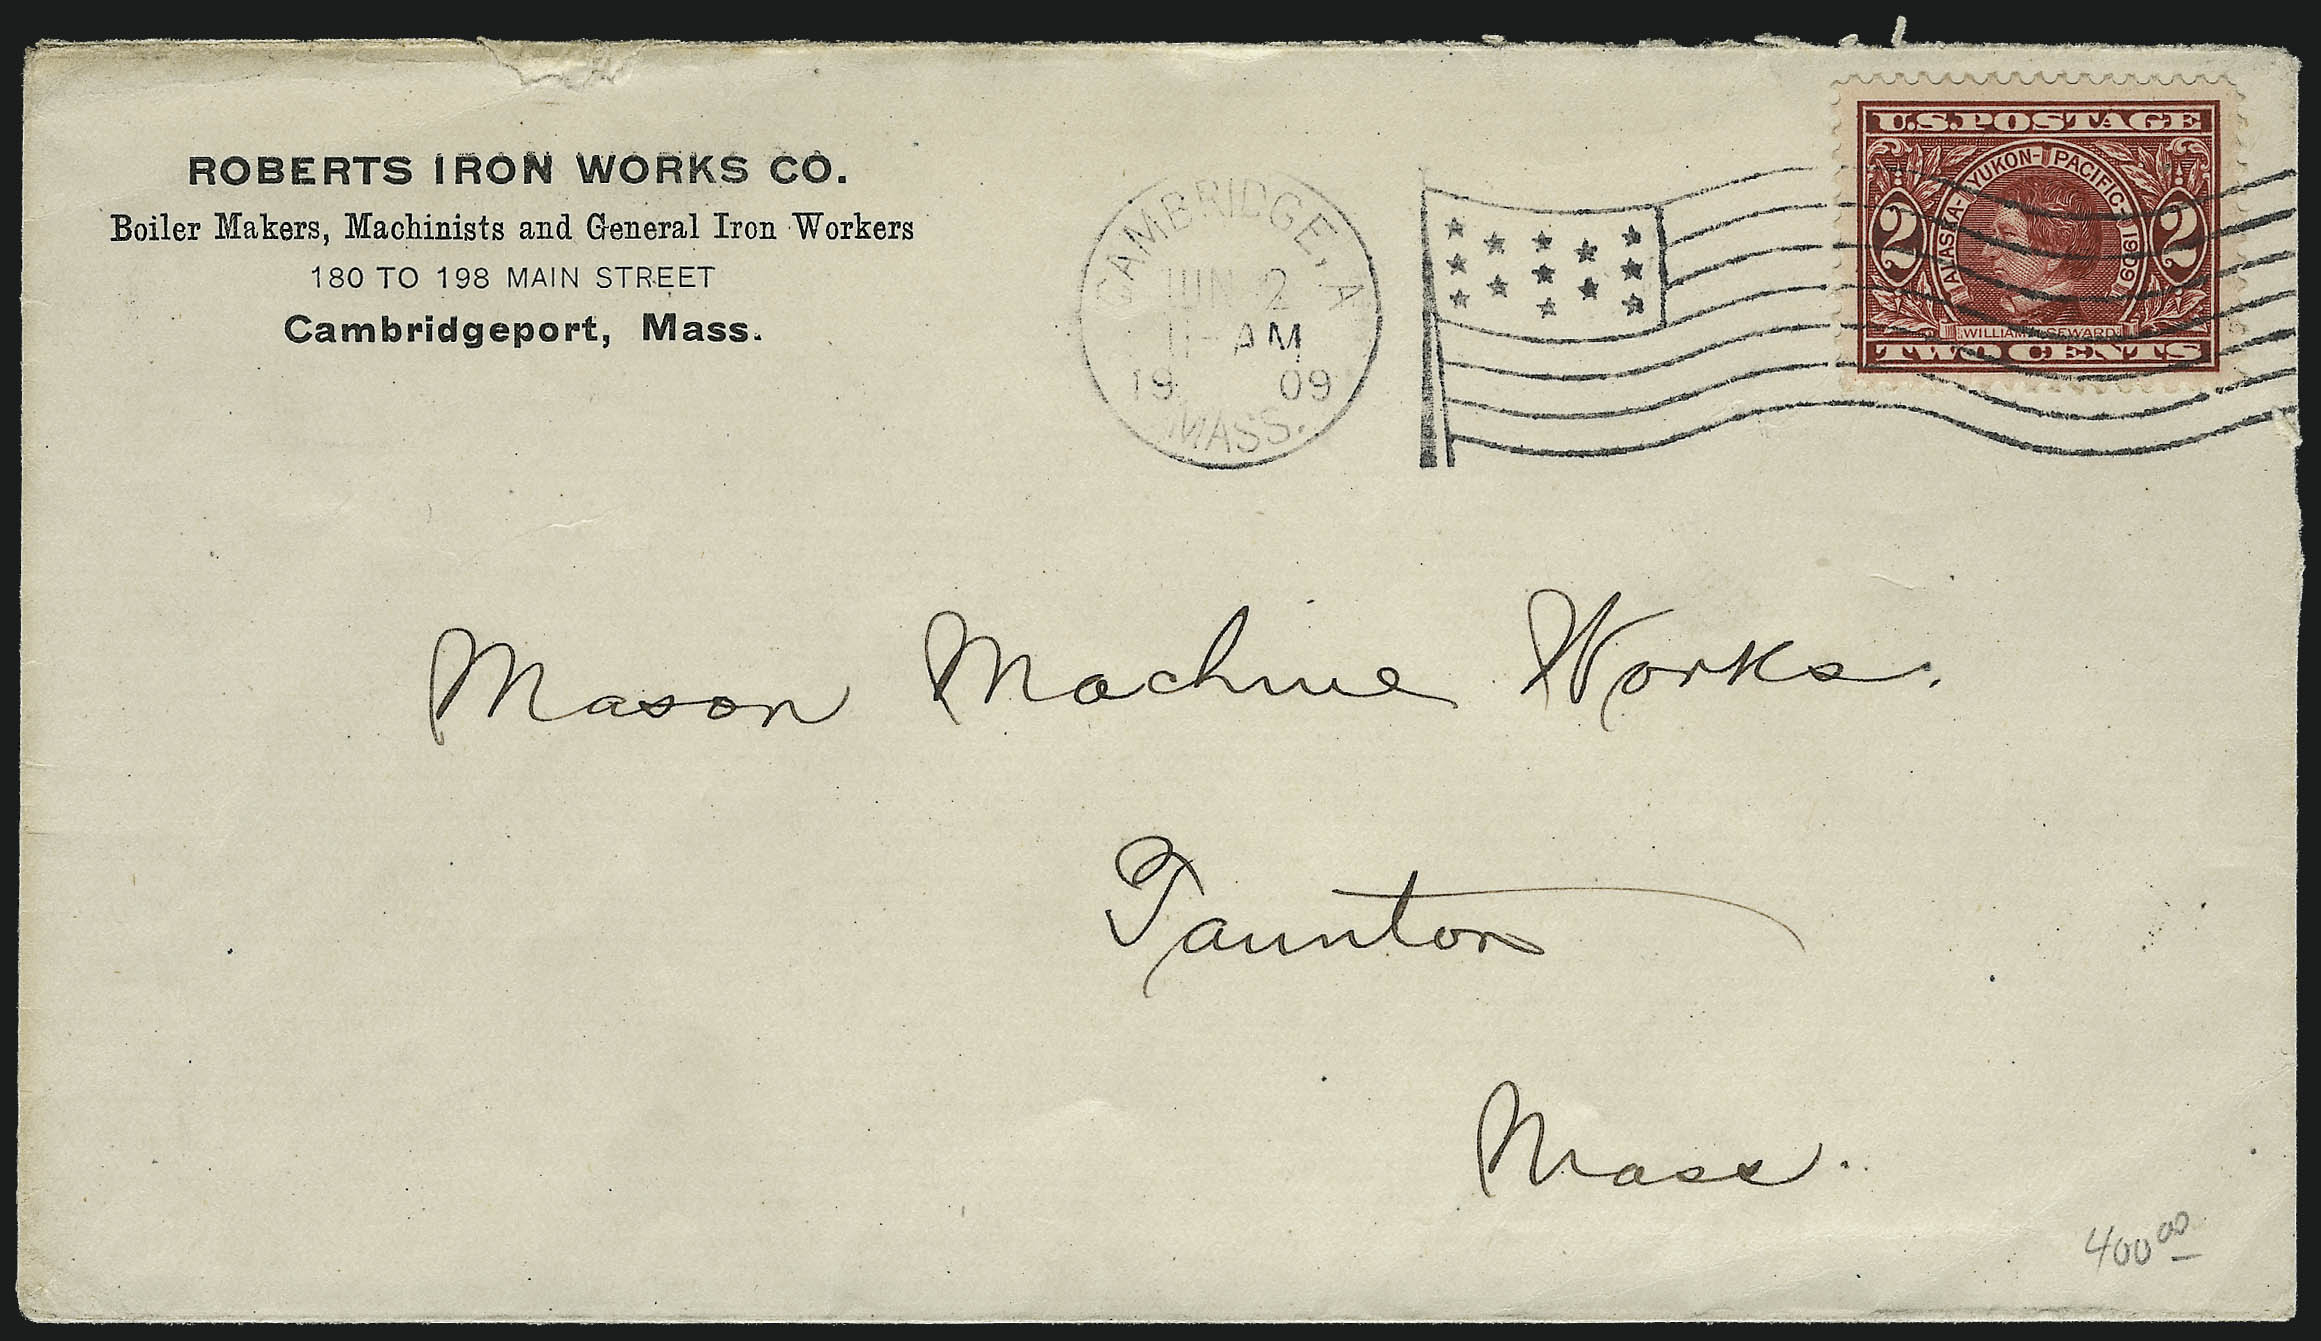 ROBERTS IRON WORKS CO.
Boiler Makers, Machinists and General Iron Workers
180 TO 198 MAIN STREET
Cambridgeport, Mass.
CAMBRIDGE, A
JUN 2
11-AM
19 09
MASS.
U.S. POSTAGE
ALASKA-YUKON-PACIFIC-1909
2 2
WILLIAM H. SEWARD
TWO CENTS
Mason Machine Works.
Taunton
Mass.
400.00